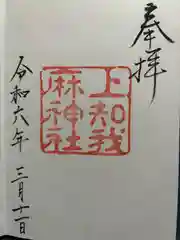 奉拝
上知我
麻神社
令和六年
三月十一日